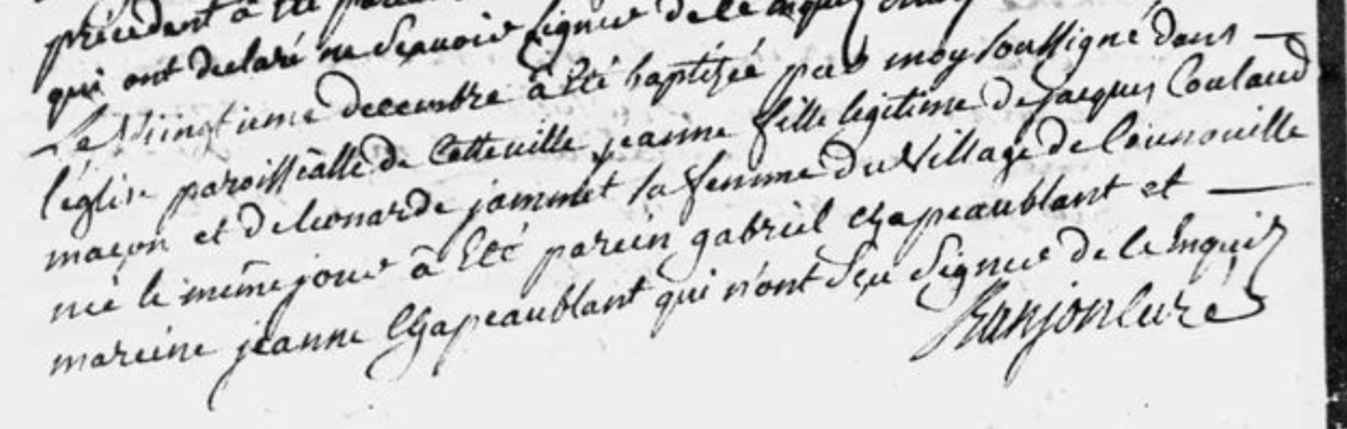 précédent à été
qui ont declaré ne sçavoir signer de ce enquis
Le vingtieme decembre à été baptisée par moy soussigné dans
l'église paroissialle de cetteville jeanne fille legitime de jacques Coulaud
maçon et de leonarde jammet sa femme du village de
née le même jour à été parein gabriel chapeaublant et
mareine jeanne chapeaublant qui n'ont sçu signer de ce enquis
curé